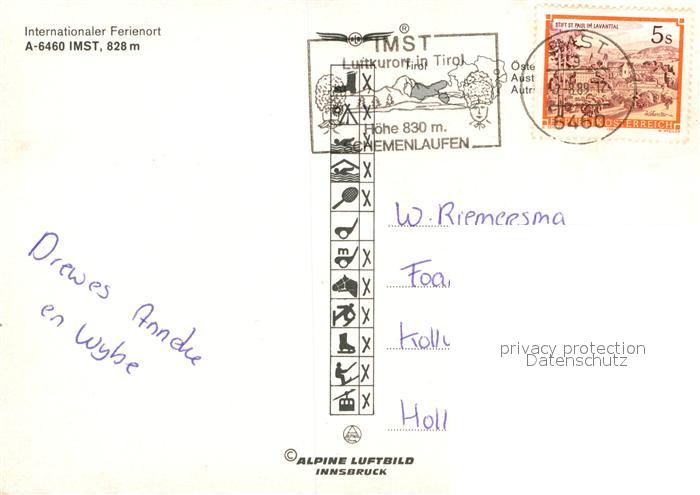 Internationaler Ferienort
A-6460 IMST, 828 m
®
IMST
Luftkurort in Tirol
Tirol
Höhe 830 m.
SCHEMENLAUFEN
STIFT ST. PAUL IM LAVANTTAL
5s
IMST
6460
ÖSTERREICH
Öste
Aust
Autri
X
X
X
X
X
m X
X
X
X
X
X
W. Riemersma
Foa
Kollu
Holl
Drewes Anneke
en Wybe
privacy protection
Datenschutz
© ALPINE LUFTBILD
INNSBRUCK